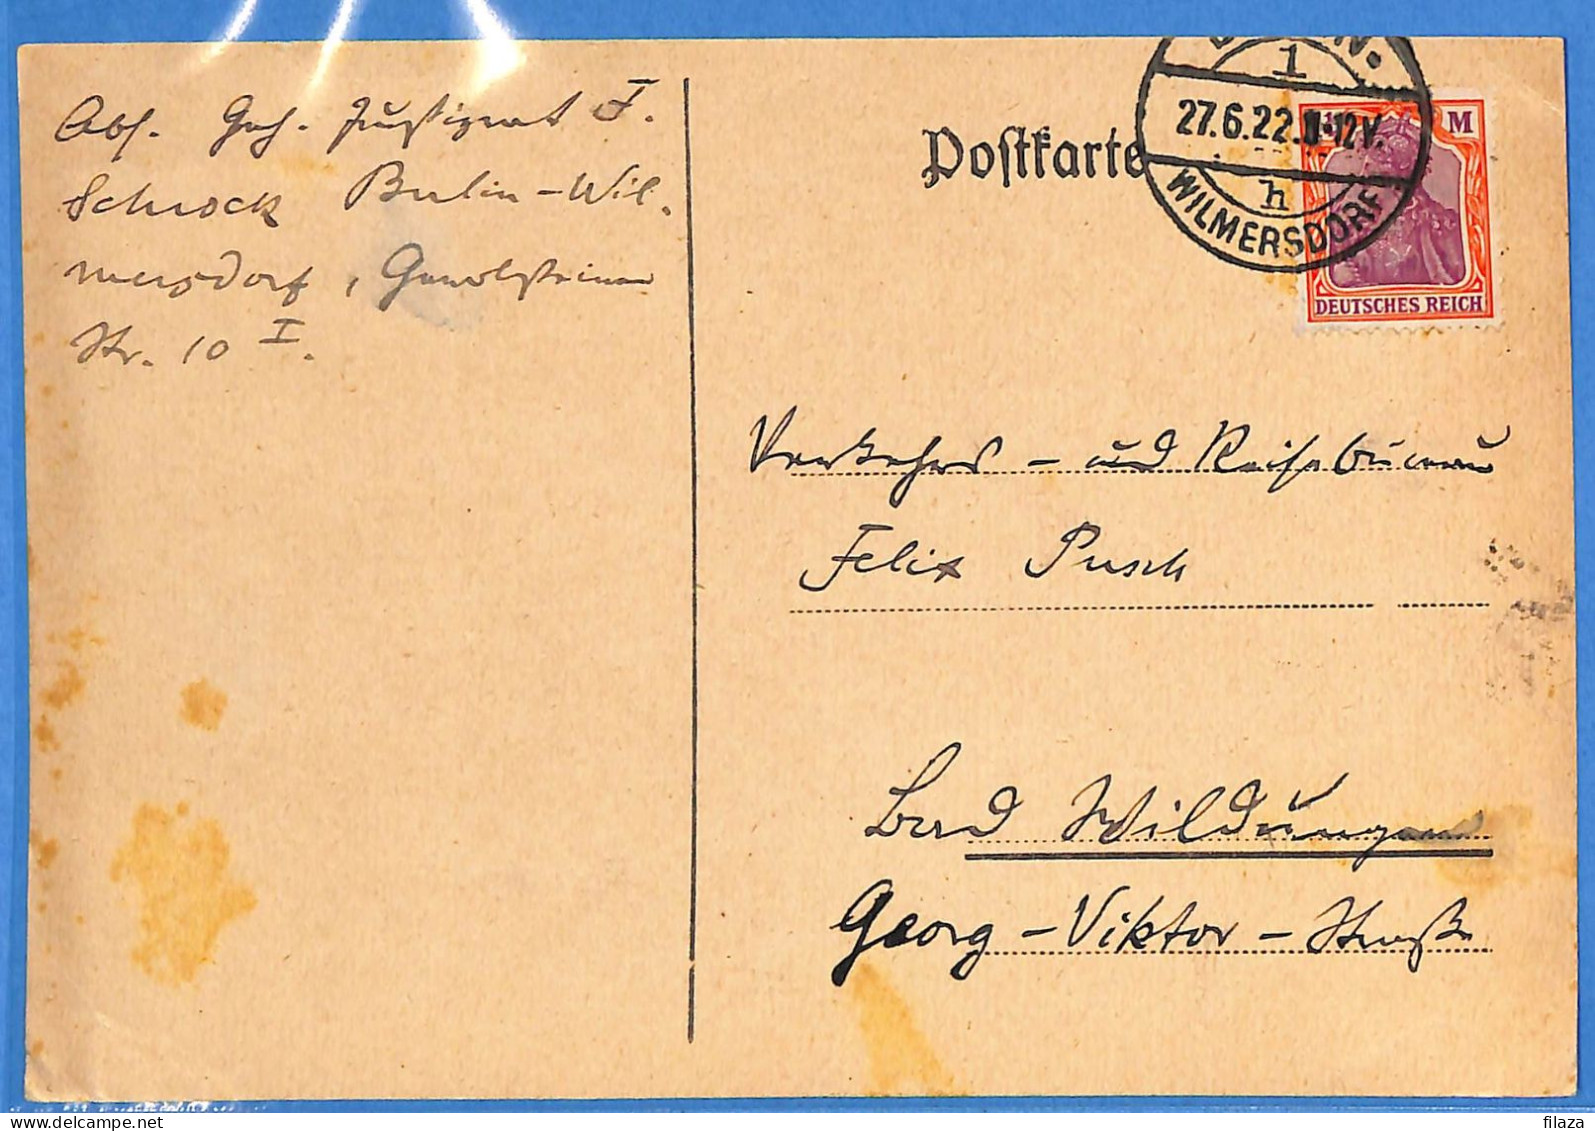 Abs. Geh. Justizrat F.
Schrock Berlin-Wil-
mersdorf, Gerolsteiner
Str. 10 I.
Postkarte
1
27.6.22. 11-12V.
h
WILMERSDORF
M
DEUTSCHES REICH
Verkehrs- und Reisebüreau
Felix Pusch
Bad Wildungen
Georg-Viktor-Straße
filaza